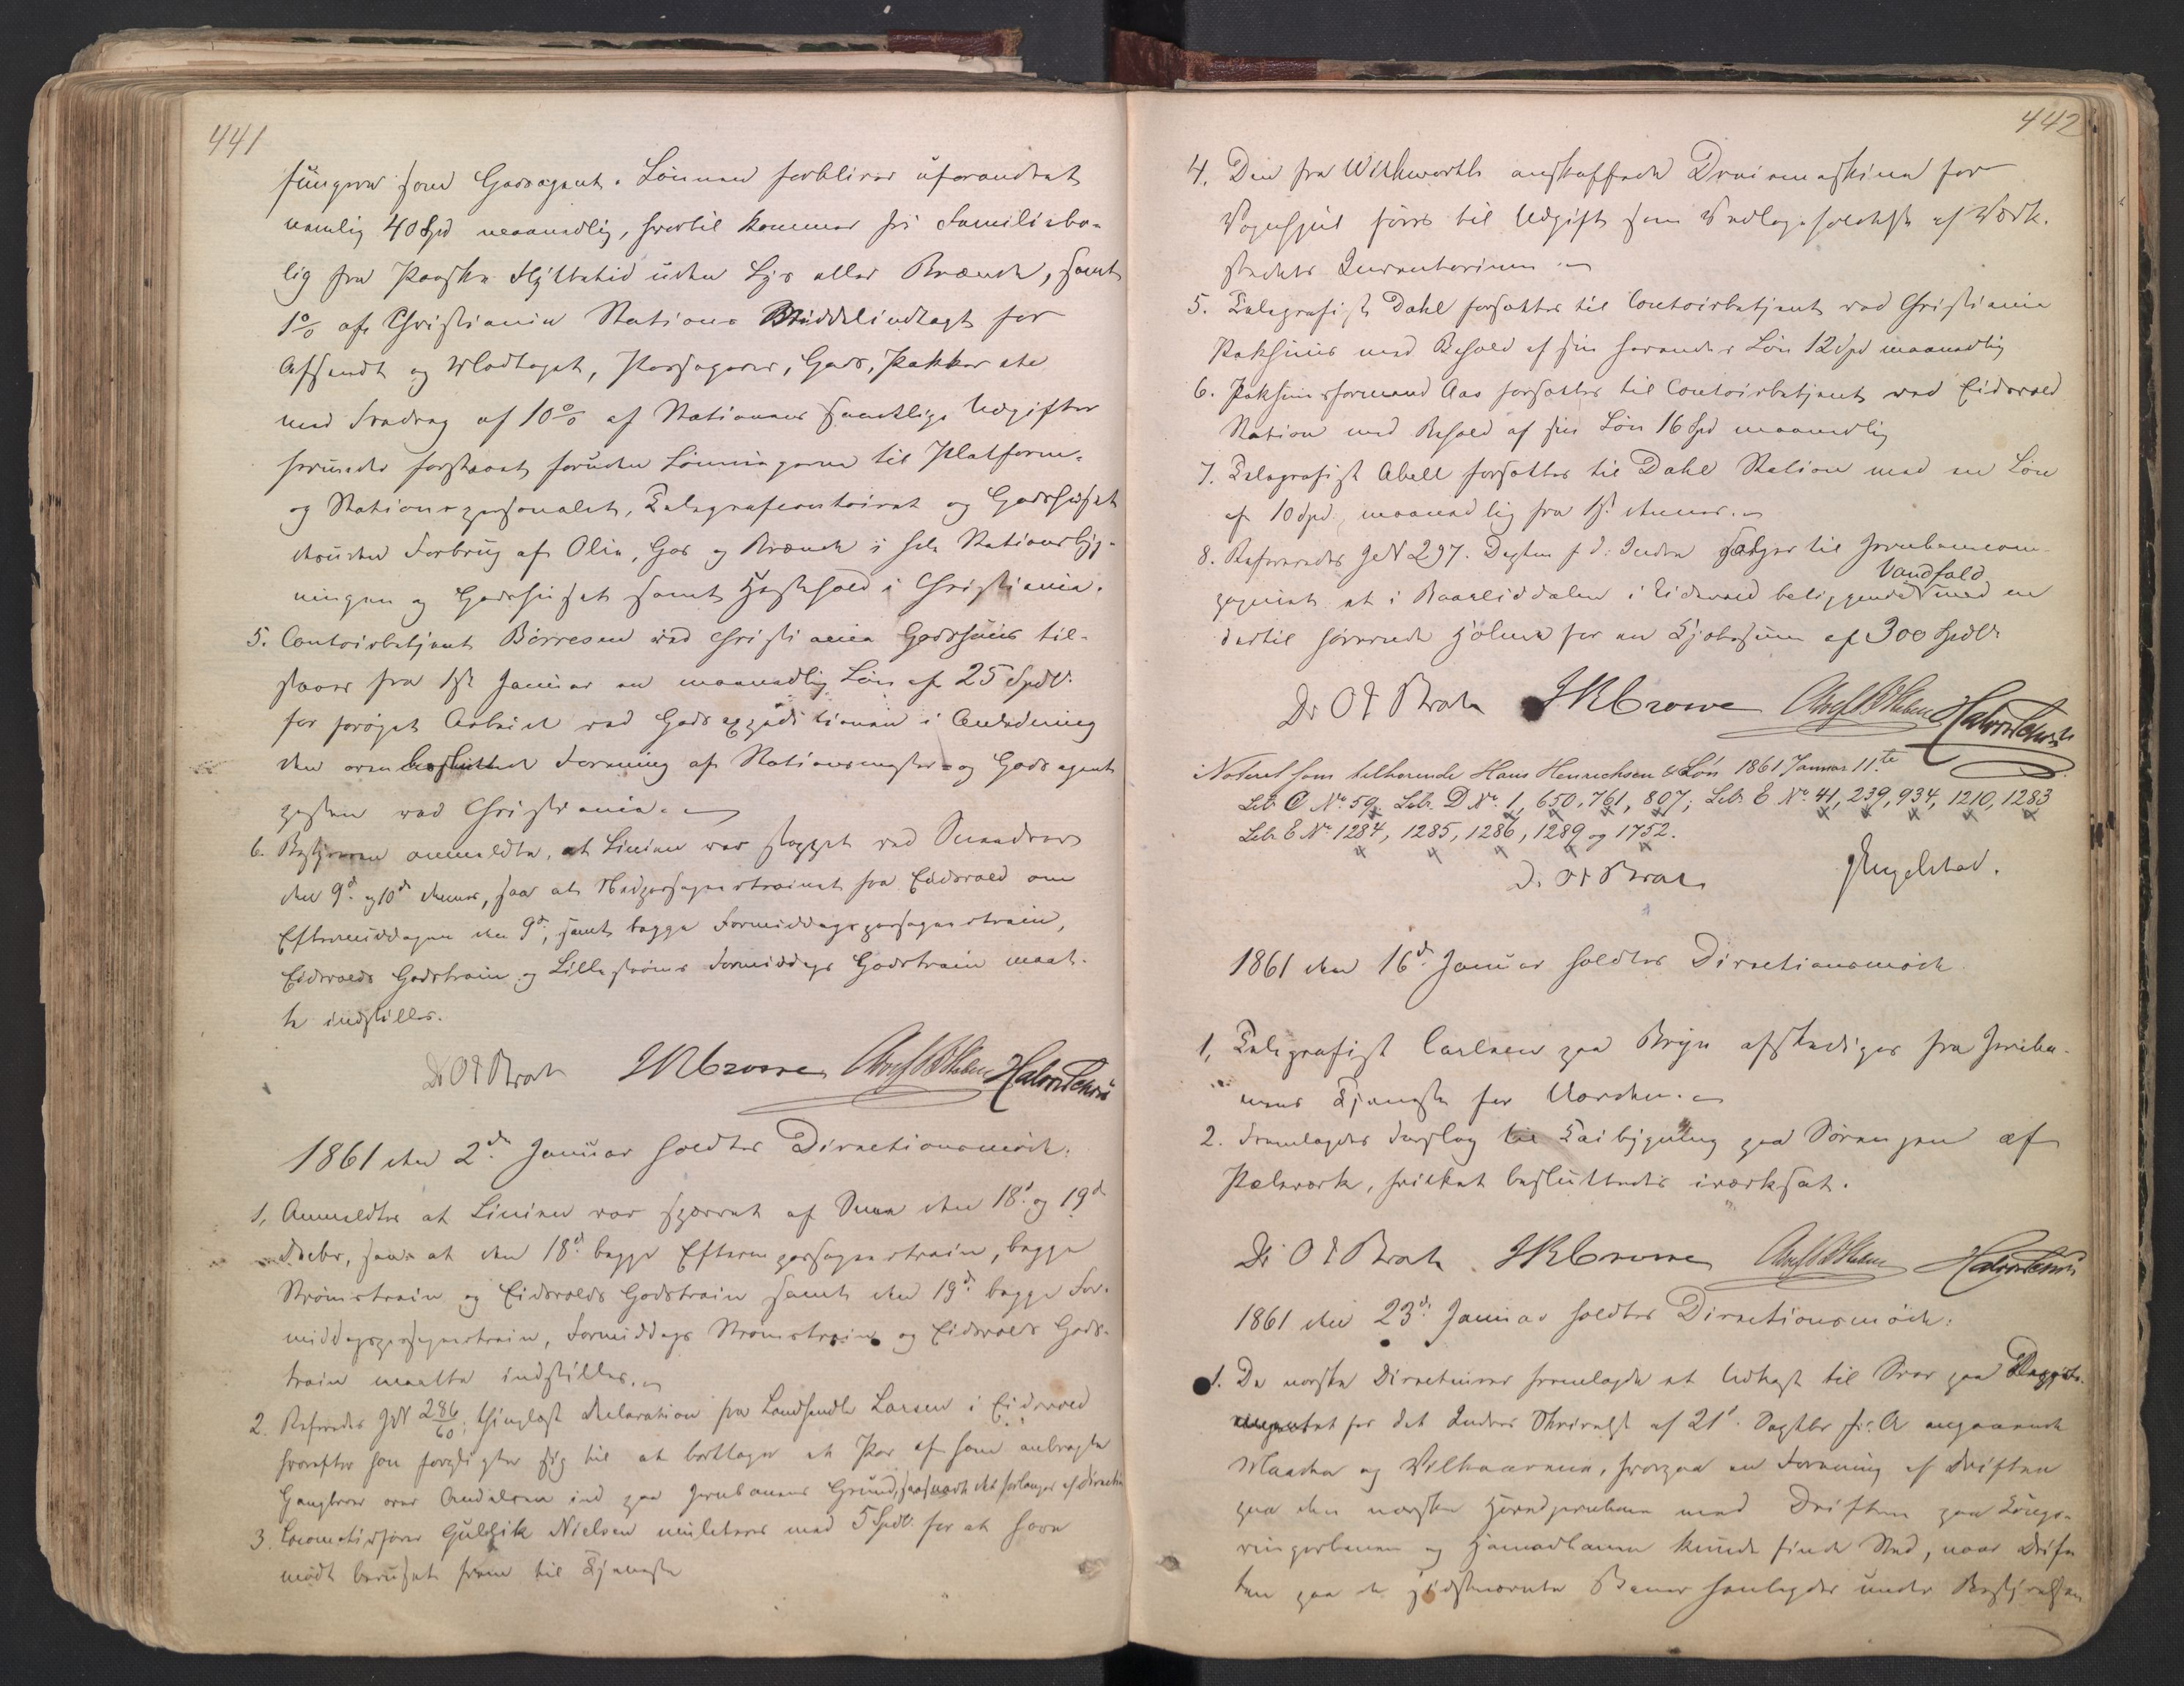 441
fungerer som Godsagent. Lønnen forbliver uforandret
nemlig 40 Spd maanedlig, hvortil kommer fri Familiebo-
lig fra Paaske Flyttetid uden Lys eller Brænde, samt
1% af Christiania Stations Middelindtægt for
Afsendt og Modtaget, Passagerer, Gods, Pakker etc
med Fradrag af 10% af Stationens samtlige Udgifter
herunder forstaaet foruden Lønningerne til Platform-
og Stationspersonalet, Telegrafcontoiret og Godshuset
desuden Forbrug af Olie, Gas og Brænde i hele Stationsbyg-
ningen og Godshuset samt Hestehold i Christiania.
5. Contoirbetjent Børresen ved Christiania Godshuus til-
staaes fra 1ste Januar en maanedlig Løn af 25 Spdl.
for forøget Arbeide ved Godsexpeditionen i Anledning
den ovenbesluttede Forening af Stationsmester- og Godsagent
posten ved Christiania.
6. Bestyreren anmeldte, at Linien var stoppet ved Sneedrev
den 9d. og 10d. dennes, saa at Nedpassagertrainet fra Eidsvold om
Eftermiddagen den 9d., samt begge Formiddagspassagertrain,
Eidsvolds Godstrain og Lillestrøms Formiddags Godstrain maat-
te indstilles.
Dr O J Broch JRCrowe Halvor Schou
1861 den 2de Januar holdtes Directionsmøde.
1, Anmeldtes at Linien var spærret af Snee den 18d. og 19d
Decbr, saa at den 18d. begge Efterm passagertrain, begge
Strømstrain og Eidsvolds Godstrain samt den 19d. begge For-
middagspassagertrain, Formiddags Strømstrain og Eidsvolds Gods-
train maatte indstilles.
2. Refereredes JN 286/60: thinglæst Declaration fra Landhandler Larsen i Eidsvold
hvorefter han forpligter sig til at borttage et Par af ham anbragte
Gangbroer over Andelven ind paa Jernbanens Grund, saasnart det forlanges af Direction
3. Locomotivfører Gulbrik Nielsen mulcteres med 5 Spdl. for at have
mødt beruset frem til Tjeneste
442
4. Den fra Withworth anskaffede Dreiemaskine for
Vognhjul føres til Udgift som Vedligeholdelse af Værk-
stedets Inventarium.
5. Telegrafist Dahl forsættes til Contoirbetjent ved Christiania
Pakhuus med Behold af sin havende Løn 12 Spd maanedlig
6. Pakhuusformand Aas forsættes til Contoirbetjent ved Eidsvold
Station med Behold af sin Løn 16 Spd maanedlig
7. Telegrafist Abell forsættes til Dahl Station med en Løn
af 10 Spd. maanedlig fra 1st. dennes.
8. Refereredes JN 297. Depten f. d. Indre sælger til Jernbanecom-
pagniet et i Baarliddalen i Eidsvold beliggende Vandfald med en
dertil hørende Hølme for en Kjøbesum af 300 Spdlr
Dr O J Broch JRCrowe Halvor Schou
Noteret som tilhørende Hans Henrichsen & Søn 1861 Januar 11te
Letr. C No. 59. Letr. D No. 1, 650, 761, 807; Letr. E No. 41, 239, 934, 1210, 1283
Letr. E No. 1284, 1285, 1286, 1289 og 1752.
Dr O J Broch Engelstad.
1861 den 16d. Januar holdtes Directionsmøde
1, Telegrafist Carlsen paa Bryn afskediges fra Jernba-
nens Tjeneste for Uorden.
2. Fremlagdes Forslag til Kaibygning paa Sørengen af
Pæleværk, hvilket besluttedes iværksat.
Dr O J Broch JRCrowe Halvor Schou
1861 den 23d. Januar holdtes Directionsmøde.
1. De norske Directeurer fremlagde et Udkast til Svar paa Departe-
mentet for det Indres Skrivelse af 21d. Septbr f. A angaaende
Maaden og Vilkaarene, hvorpaa en Forening af Driften
paa den norske Hovedjernbane med Driften paa Kongs-
vingerbanen og Hamarbanen kunde finde Sted, naar Drif-
ten paa de sidstnævnte Baner henlagdes under Bestyrelsen